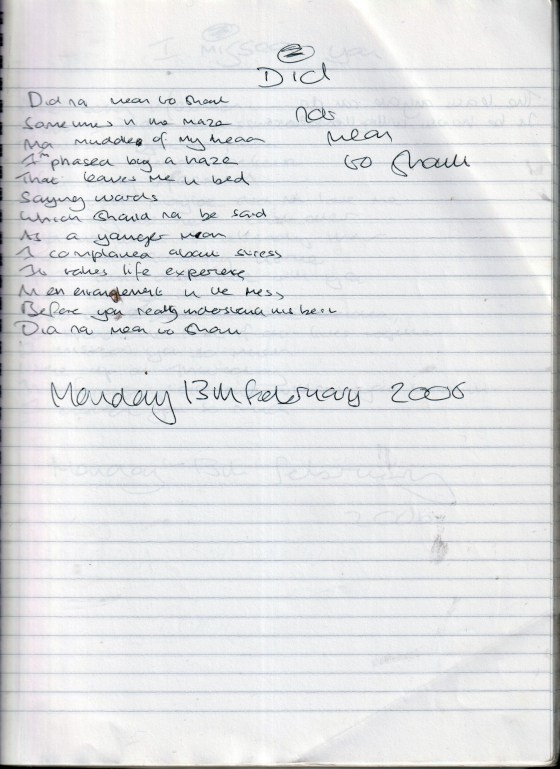 Did
not
mean
to shout
Did not mean to shout
Sometimes in the maze
muddle of my head
I'm phased by a haze
That leaves me in bed
Saying words
Which should not be said
As a younger man
I complained about stress
It takes life experience
entanglement in the mess
Before you really understand
Did not mean to shout
Monday 13th February 2006